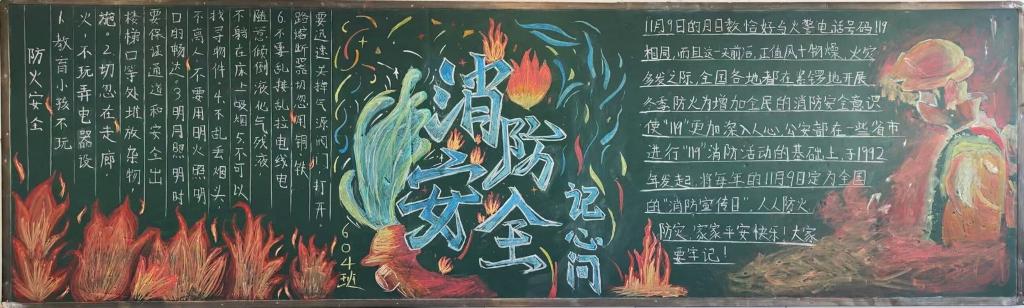 防火安全
1.教育小孩不玩
火,不玩弄电器设
施。2.切忽在走廊
楼梯口等处堆放杂物
要保证通道和安全出
口的畅达,3.明月照明时
不离人,不要用明火照明
找寻物件,4.不乱丢烟头,
不躺在床上吸烟.5.不可以
随意倾倒液化气残液
6.不要乱接乱拉电线电
路熔断器切忽用铜铁
要迅速关掉气源阀门,打开
604班
消防
安全
记心间
11月9日的月日数恰好与火警电话号码119
相同,而且这一天前后,正值风干物燥、火灾
多发之际,全国各地都在紧锣地开展
冬季防火为增加全民的消防安全意识
使"119"更加深入人心公安部在一些省市
进行"119"消防活动的基础上,于1992
年发起,将每年的11月9日定为全国
的"消防宣传日"、人人防火
防灾,家家平安快乐!大家
要牢记!